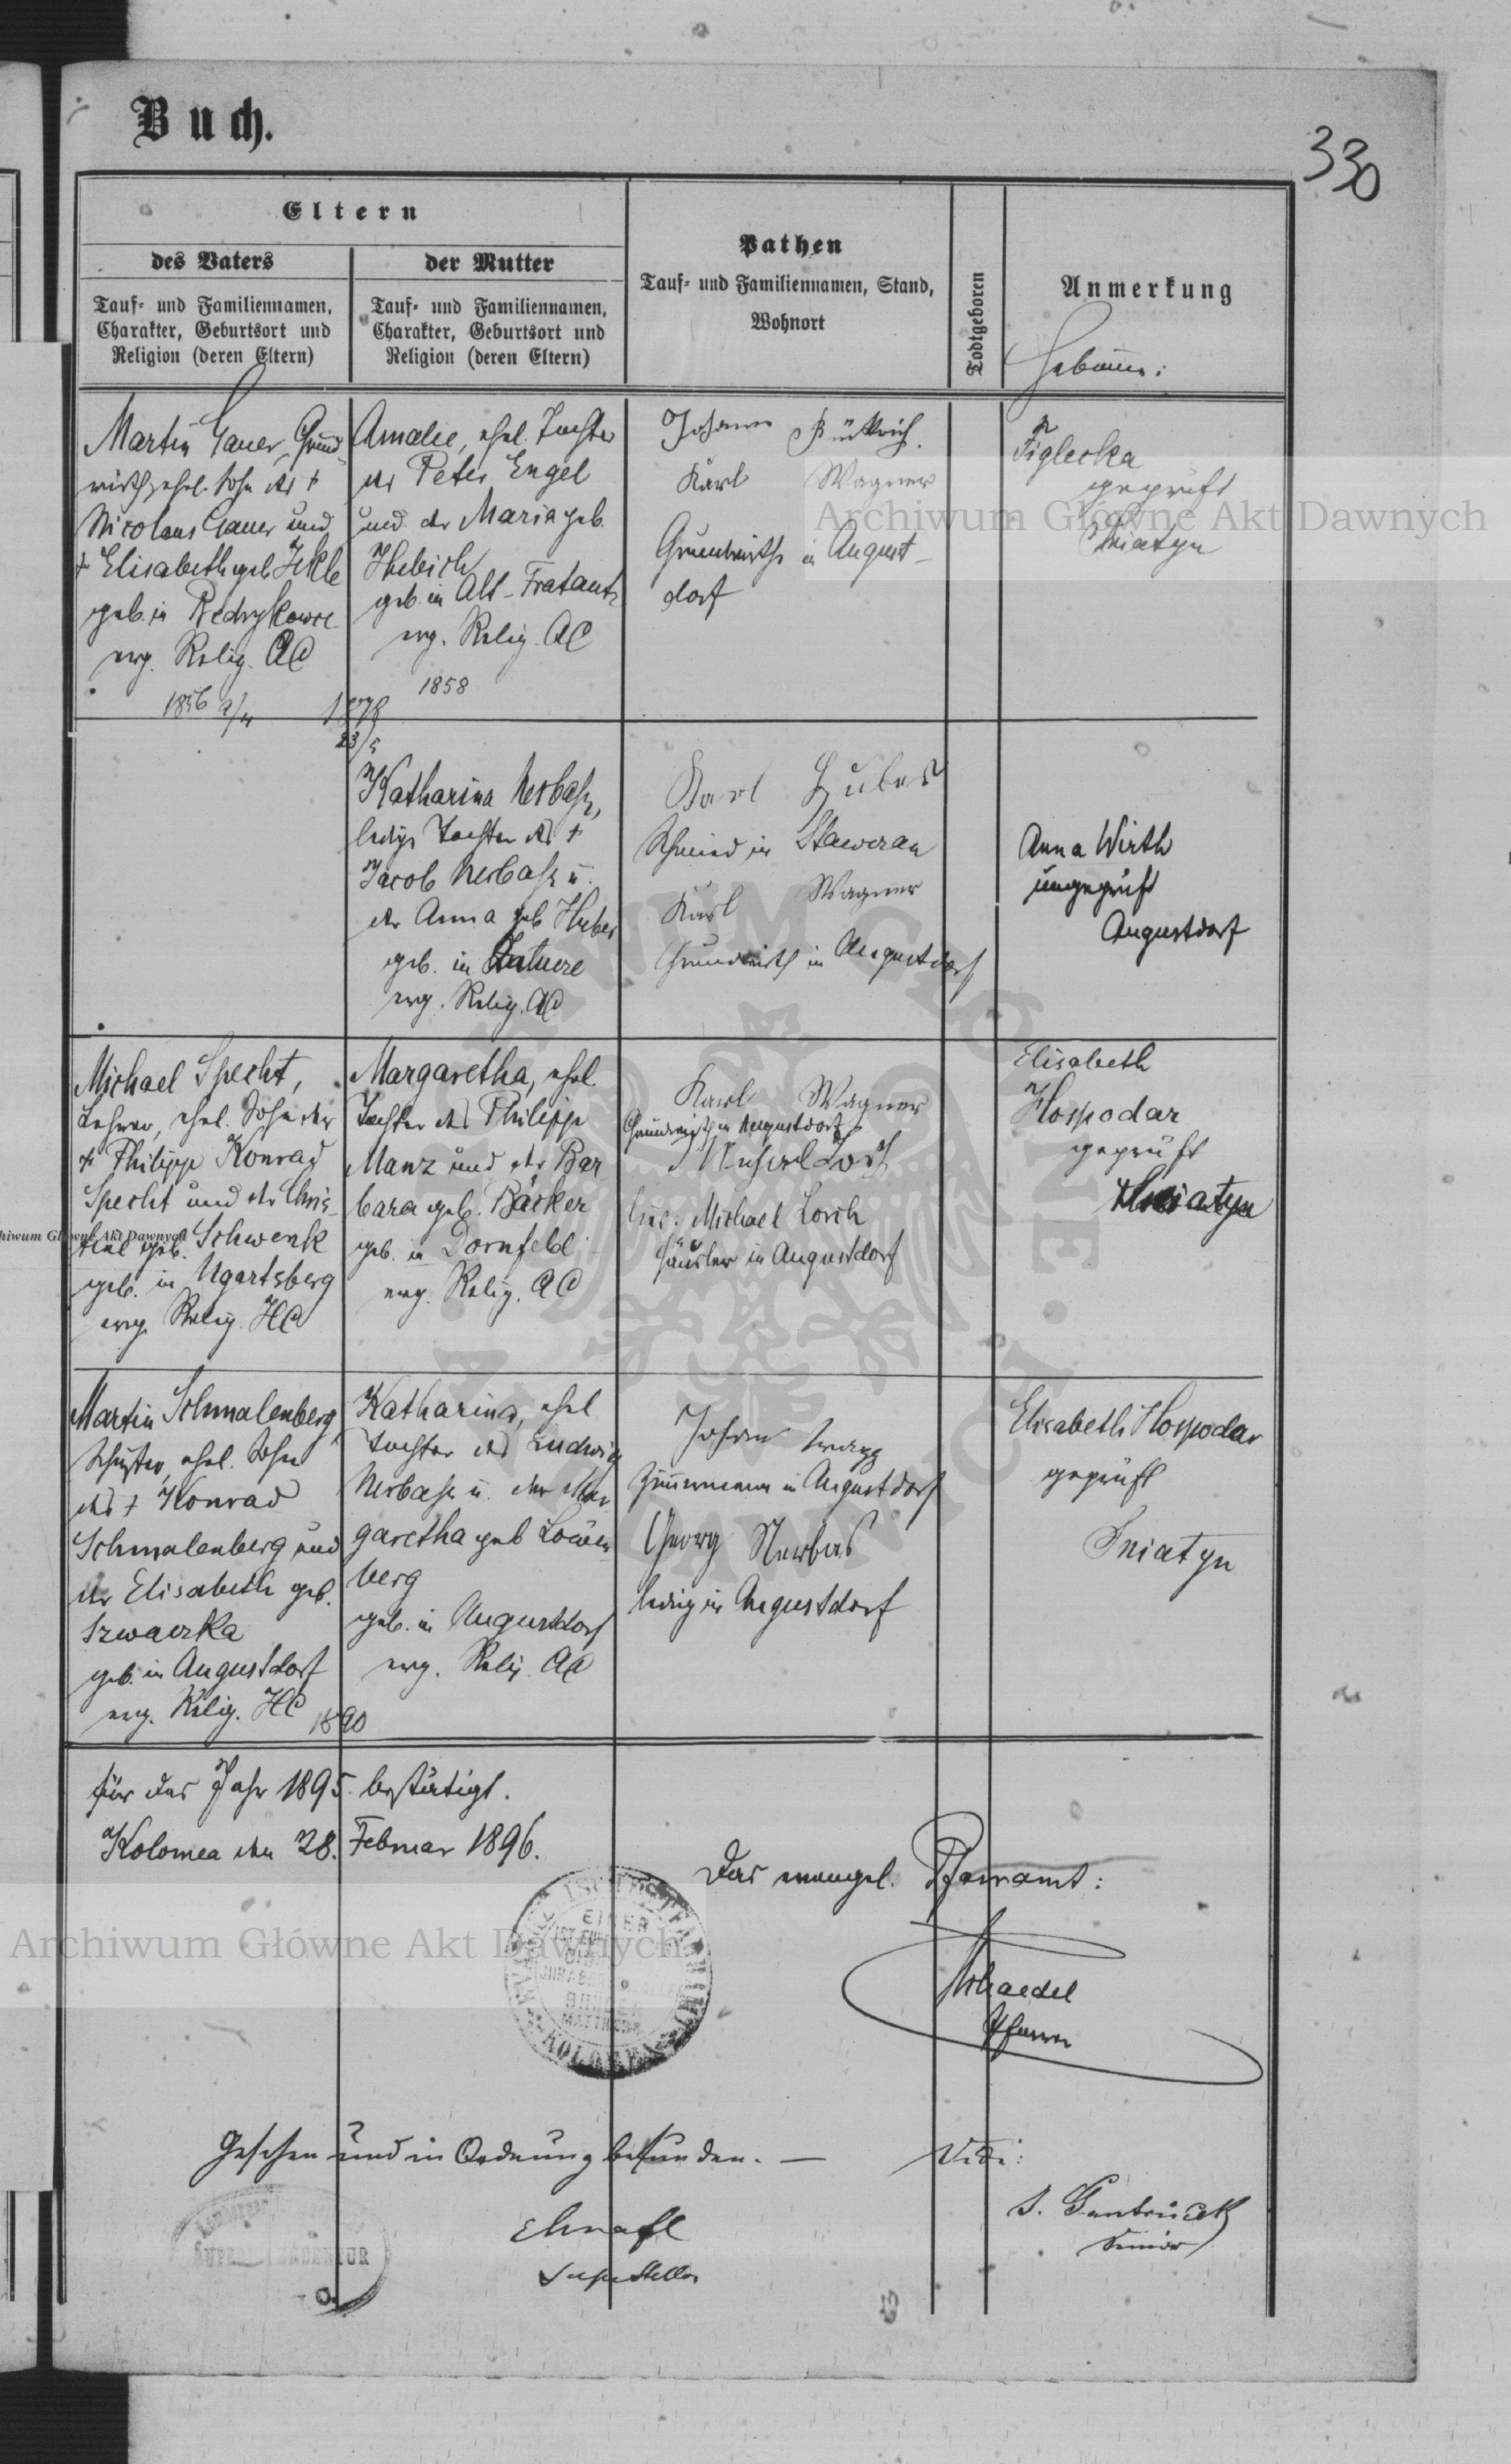 Buch.
330
Eltern
des Vaters
Tauf- und Familiennamen,
Charakter, Geburtsort und
Religion (deren Eltern)
der Mutter
Tauf- und Familiennamen,
Charakter, Geburtsort und
Religion (deren Eltern)
Pathen
Tauf- und Familiennamen, Stand,
Wohnort
Todtgeboren
Anmerkung
Martin Gauer, Grund-
wirth, ehel. Sohn des †
Nicolaus Gauer und
† Elisabeth geb. Jekle
geb. in
evg. Relig. AC
1856
Amalie, ehel. Tochter
des Peter Engel
und der Maria geb.
Hubich
geb. in Alt-Fratautz
evg. Relig. AC
1858
1878
23/5
Johann
Karl Wagner
Grundwirthe in August-
dorf
geprüft
Sniatyn
Katharina Nerbass,
ledige Tochter des †
Jacob Nerbass u.
der Anna geb. Huber
geb. in
evg. Relig. AC
Karl Huber
Schmied in
Karl Wagner
Grundwirth in Augustdorf
Anna Wirth
ungeprüft
Augustdorf
Michael Specht,
Lehrer, ehel. Sohn des
† Philipp Konrad
Specht und der Chris-
geb. Schwenk
geb. in Ugartsberg
evg. Relig. HC
Margaretha, ehel.
Tochter des Philipp
Manz und der Bar-
bara geb. Bäcker
geb. in Dornfeld
evg. Relig. AC
Karl Wagner
Grundwirth in Augustdorf
Michael Lorch
Häusler in Augustdorf
Elisabeth
Hospodar
geprüft
Sniatyn
Martin Schmalenberg,
Schuster, ehel. Sohn
des † Konrad
Schmalenberg und
der Elisabeth geb.
geb. in Augustdorf
evg. Relig. HC
1890
Katharina, ehel.
Tochter des Ludwig
Nerbass u. der Mar-
garetha geb. Löwen-
berg
geb. in Augustdorf
evg. Relig. AC
Johann
Zimmermann in Augustdorf
Georg Nerbas
ledig in Augustdorf
Elisabeth Hospodar
geprüft
Sniatyn
für das Jahr 1895 bestätigt.
Kolomea den 28. Februar 1896.
Das evangel. Pfarramt:
Pfarrer
Gesehen und in Ordnung befunden. —
Vidi:
Senior
Archiwum Główne Akt Dawnych
Archiwum Główne Akt Dawnych